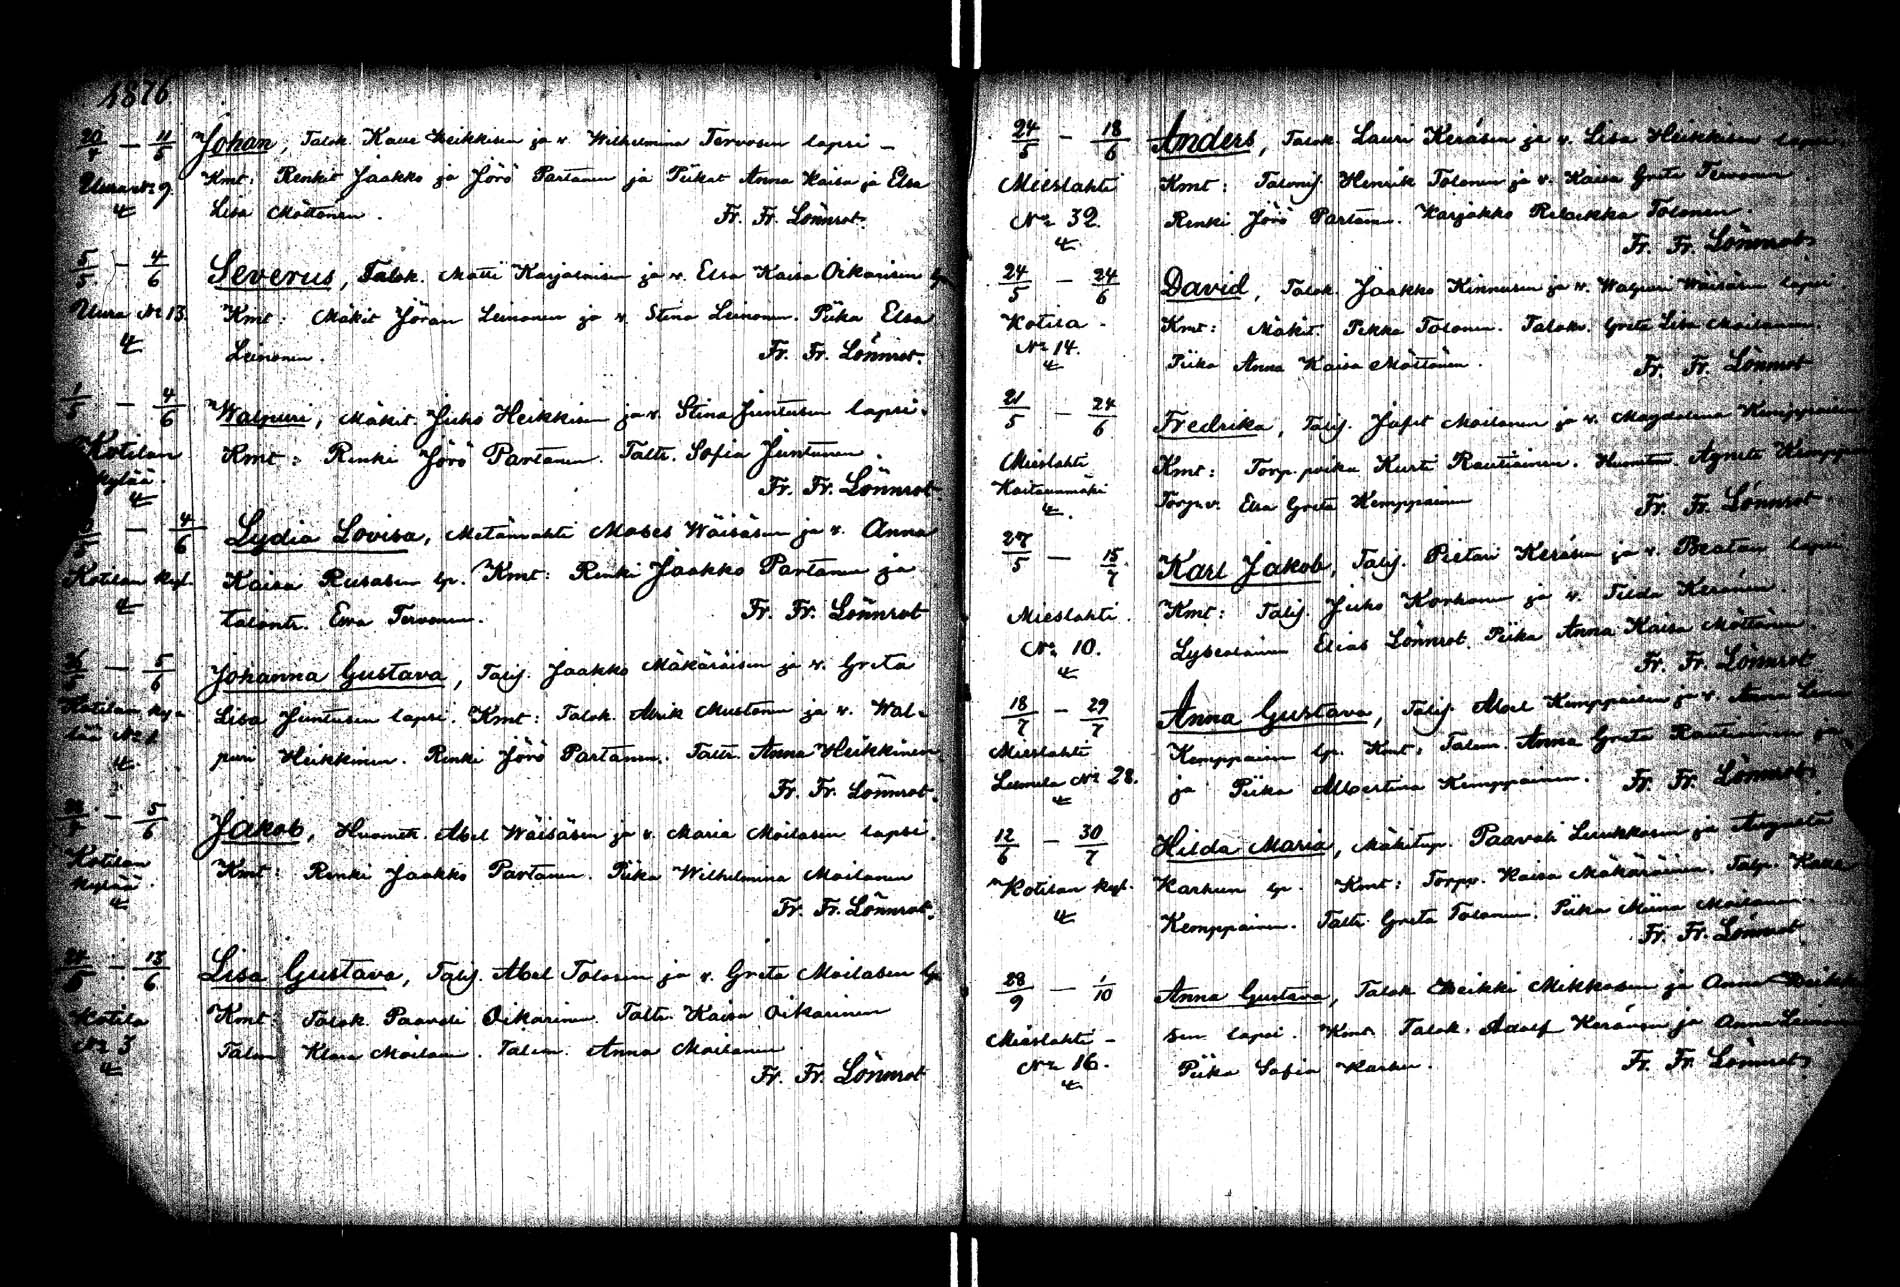 1876
20/4 — 11/5 Johan, Talok. Kalle Heikkisen ja v. Wilhelmina Tervosen lapsi —
Uura № 9. Kmt: Renkit Jaakko ja Jörö Partanen ja Piikat Anna Kaisa ja Elsa
4 Lisa Möttönen. Fr. Fr. Lönnrot.
5/5 — 4/6 Severus, Talok. Matti Karjalaisen ja v. Elsa Kaisa Oikarisen lps
Uura № 13. Kmt: Mäkit Jöran Leinonen ja v. Stina Leinonen. Piika Elsa
4 Leinonen. Fr. Fr. Lönnrot.
1/5 — 4/6 Walpuri, Mäkit. Juho Heikkisen ja v. Stina Juntusen lapsi.
Kotilan Kmt: Renki Jörö Partanen. Taltr. Sofia Juntunen.
kylää. Fr. Fr. Lönnrot.
4
— 4/6 Lydia Lovisa, Metänvahti Moses Wäisäsen ja v. Anna
Kotilan kyl. Kaisa Rusasen lp. Kmt: Renki Jaakko Partanen ja
4 talontr. Ewa Tervonen. Fr. Fr. Lönnrot
— 5/6 Johanna Gustava, Talij. Jaakko Mäkäräisen ja v. Greta
Kotilan ky- Lisa Juntusen lapsi. Kmt: Talok. Abrik Mustonen ja v. Wal-
lää № 1 puri Heikkinen. Renki Jörö Partanen. Taltr. Anna Heikkinen.
4 Fr. Fr. Lönnrot.
— 5/6 Jakob, Huonem. Abel Wäisäsen ja v. Maria Moilasen lapsi.
Kotilan Kmt: Renki Jaakko Partanen. Piika Wilhelmina Moilanen
kylää. Fr. Fr. Lönnrot.
4
24/5 — 18/6 Lisa Gustava, Talij. Abel Tolosen ja v. Greta Moilasen lp.
Kotila Kmt: Talok. Paavali Oikarinen. Taltr. Kaisa Oikarinen
№ 3 Talon Klara Moilanen. Talon. Anna Moilanen.
4 Fr. Fr. Lönnrot
24/5 — 18/6 Anders, Talok. Lauri Keräsen ja v. Lisa Heikkisen lapsi.
Mieslahti Kmt: Talonij. Henrik Tolonen ja v. Kaisa Greta Tervonen.
№ 32. Renki Jörö Partanen. Karjakko Rebekka Tolonen.
4 Fr. Fr. Lönnrot
24/5 — 24/6 David, Talok. Jaakko Kinnusen ja v. Walpuri Wäisäsen lapsi.
Kotila. Kmt: Mäkit. Pekka Tolonen. Talokv. Greta Lisa Moilanen.
№ 14. Piika Anna Kaisa Möttönen. Fr. Fr. Lönnrot
4
21/5 — 24/6 Fredrika, Talij. Jafet Moilanen ja v. Magdalena Kemppaisen
Mieslahti Kmt: Torp. poika Kurti Rautiainen. Agneta Kemppainen
Hartaanmäki Torp. v. Elsa Greta Kemppainen Fr. Fr. Lönnrot.
4.
27/5 — 15/7 Karl Jakob, Talij. Pietari Keräsen ja v. Beatan lapsi.
Mieslahti. Kmt: Talij. Juho Korhonen ja v. Tilda Keränen.
№ 10. Lyseolainen Elias Lönnrot. Piika Anna Kaisa Möttönen.
4 Fr. Fr. Lönnrot
18/7 — 29/7 Anna Gustava, Talij. Abel Kemppaisen ja v. Anna Lisa
Mieslahti Kemppaisen lp. Kmt: Talon. Anna Greta Rautiainen ja
Leinola № 28. ja Piika Albertina Kemppainen. Fr. Fr. Lönnrot
4
12/6 — 30/7 Hilda Maria, Mäkitup. Paavali Leinkkosen ja Augusta
Kotilan kyl. Karhun lp. Kmt: Torpp. Kaisa Mäkäräinen. Talp. Kalle
4 Kemppainen. Taltr Greta Tolonen. Piika Miina Moilanen.
Fr. Fr. Lönnrot.
28/9 — 1/10 Anna Gustava, Talok Heikki Mikkosen ja Anna Heikki-
Mieslahti — sen lapsi. Kmt. Talok. Adolf Keränen ja Anna Leinonen
№ 16. Piika Sofia Karhu. Fr. Fr. Lönnrot
4